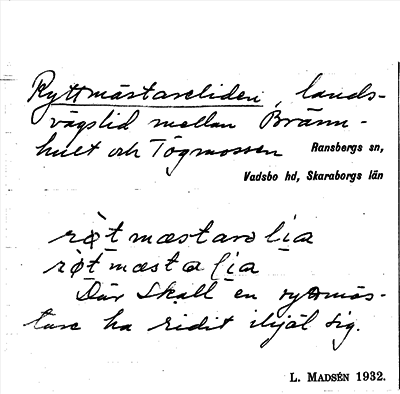 Ryttmästareliden, lands-
vägslid mellan Bränn-
hult och Tögmossen Ransbergs sn,
Vadsbo hd, Skaraborgs län
rø̀t mæstarolia
rø̀t mæstalia
Där skall en ryttmäs-
tare ha ridit ihjäl sig.
L. MADSÉN 1932.